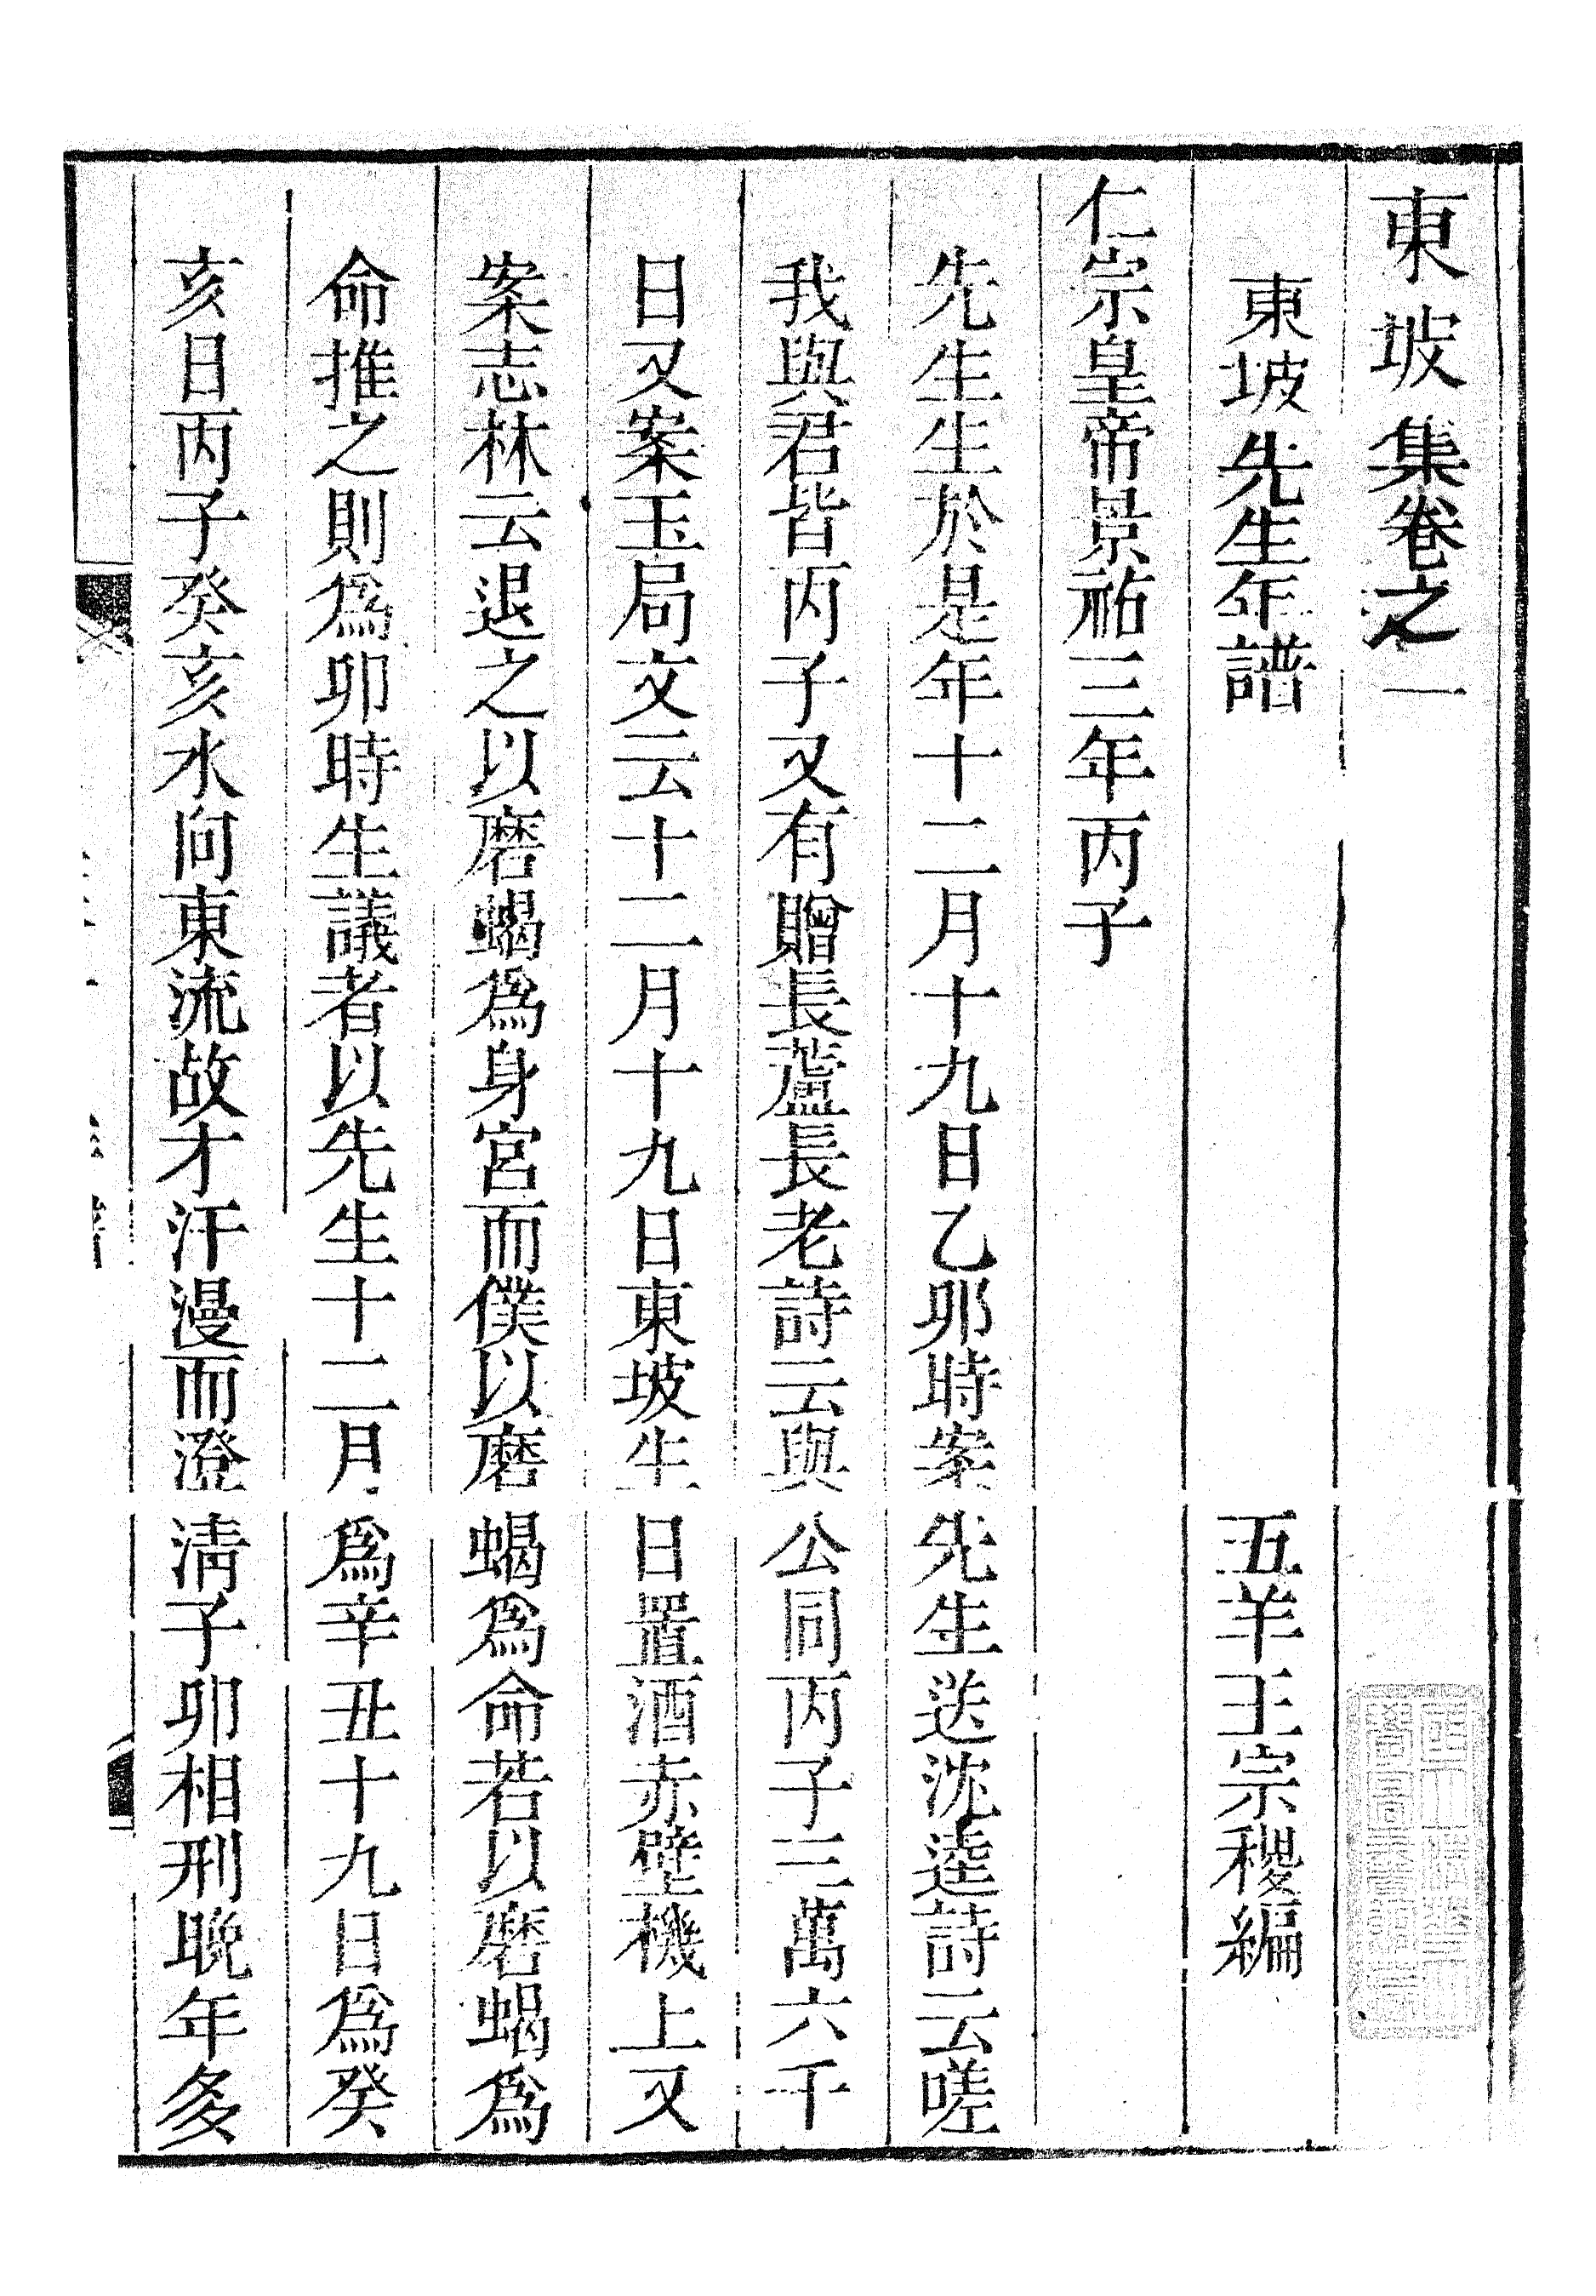 東坡集卷之一
東坡先生年譜
五羊王宗稷編
仁宗皇帝景祐三年丙子
先生生於是年十二月十九日乙卯時案先生送沈逵詩云嗟
我與君皆丙子又有贈長蘆長老詩云與公同丙子三萬六千
日又案玉局文云十二月十九日東坡生日置酒赤壁機上又
案志林云退之以磨蝎爲身宮而僕以磨蝎爲命若以磨蝎爲
命推之則爲卯時生議者以先生十二月爲辛丑十九日爲癸
亥日丙子癸亥水向東流故才汗漫而澄淸子卯相刑晚年多